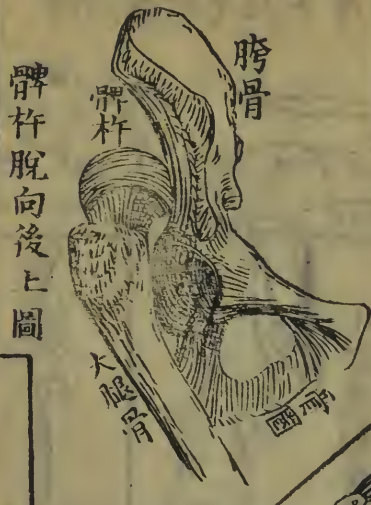 胯骨
髀杵
髀杵脫向後上圖
大腿骨